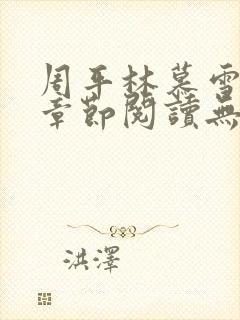 周平林慕雪
章節閱讀無
洪澤